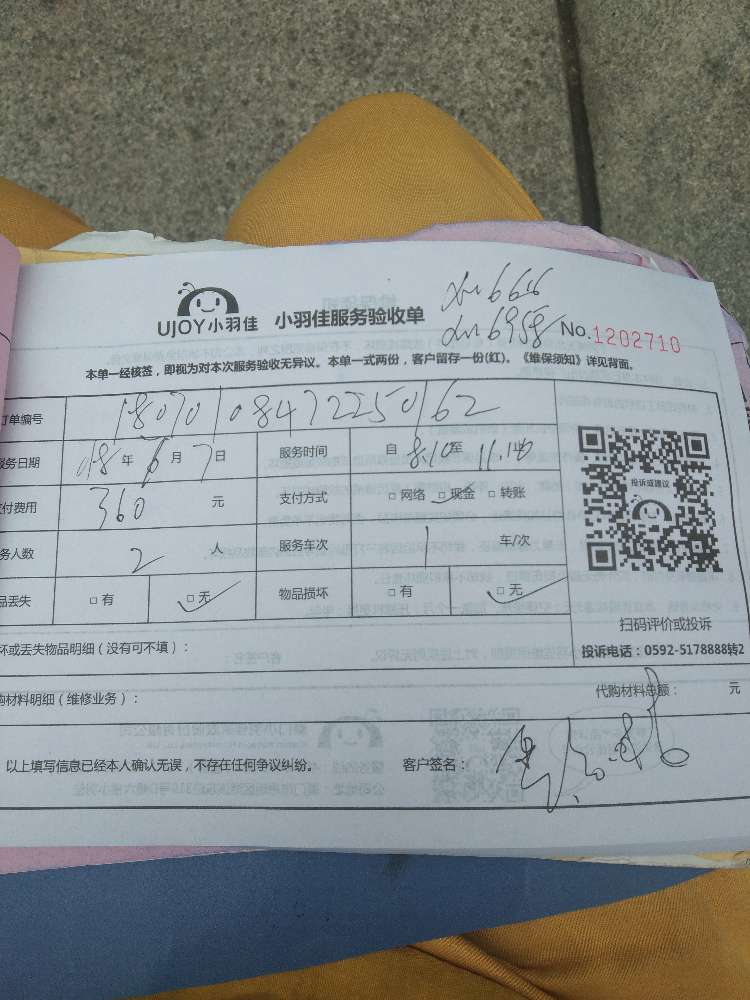 UJOY小羽佳 小羽佳服务验收单 No.1202710
xm666
xm6958
本单一经核签，即视为对本次服务验收无异议。本单一式两份，客户留存一份(红)。《维保须知》详见背面。
订单编号 180701084722250162
服务日期 018年6月7日 服务时间 自8:10至11:10
付费用 360元 支付方式 □网络 □现金 □转账
务人数 2人 服务车次 1 车/次
品丢失 □有 □无 物品损坏 □有 □无
投诉或建议
扫码评价或投诉
坏或丢失物品明细（没有可不填）： 投诉电话：0592-5178888转2
购材料明细（维修业务）： 代购材料总额： 元
以上填写信息已经本人确认无误，不存在任何争议纠纷。 客户签名：